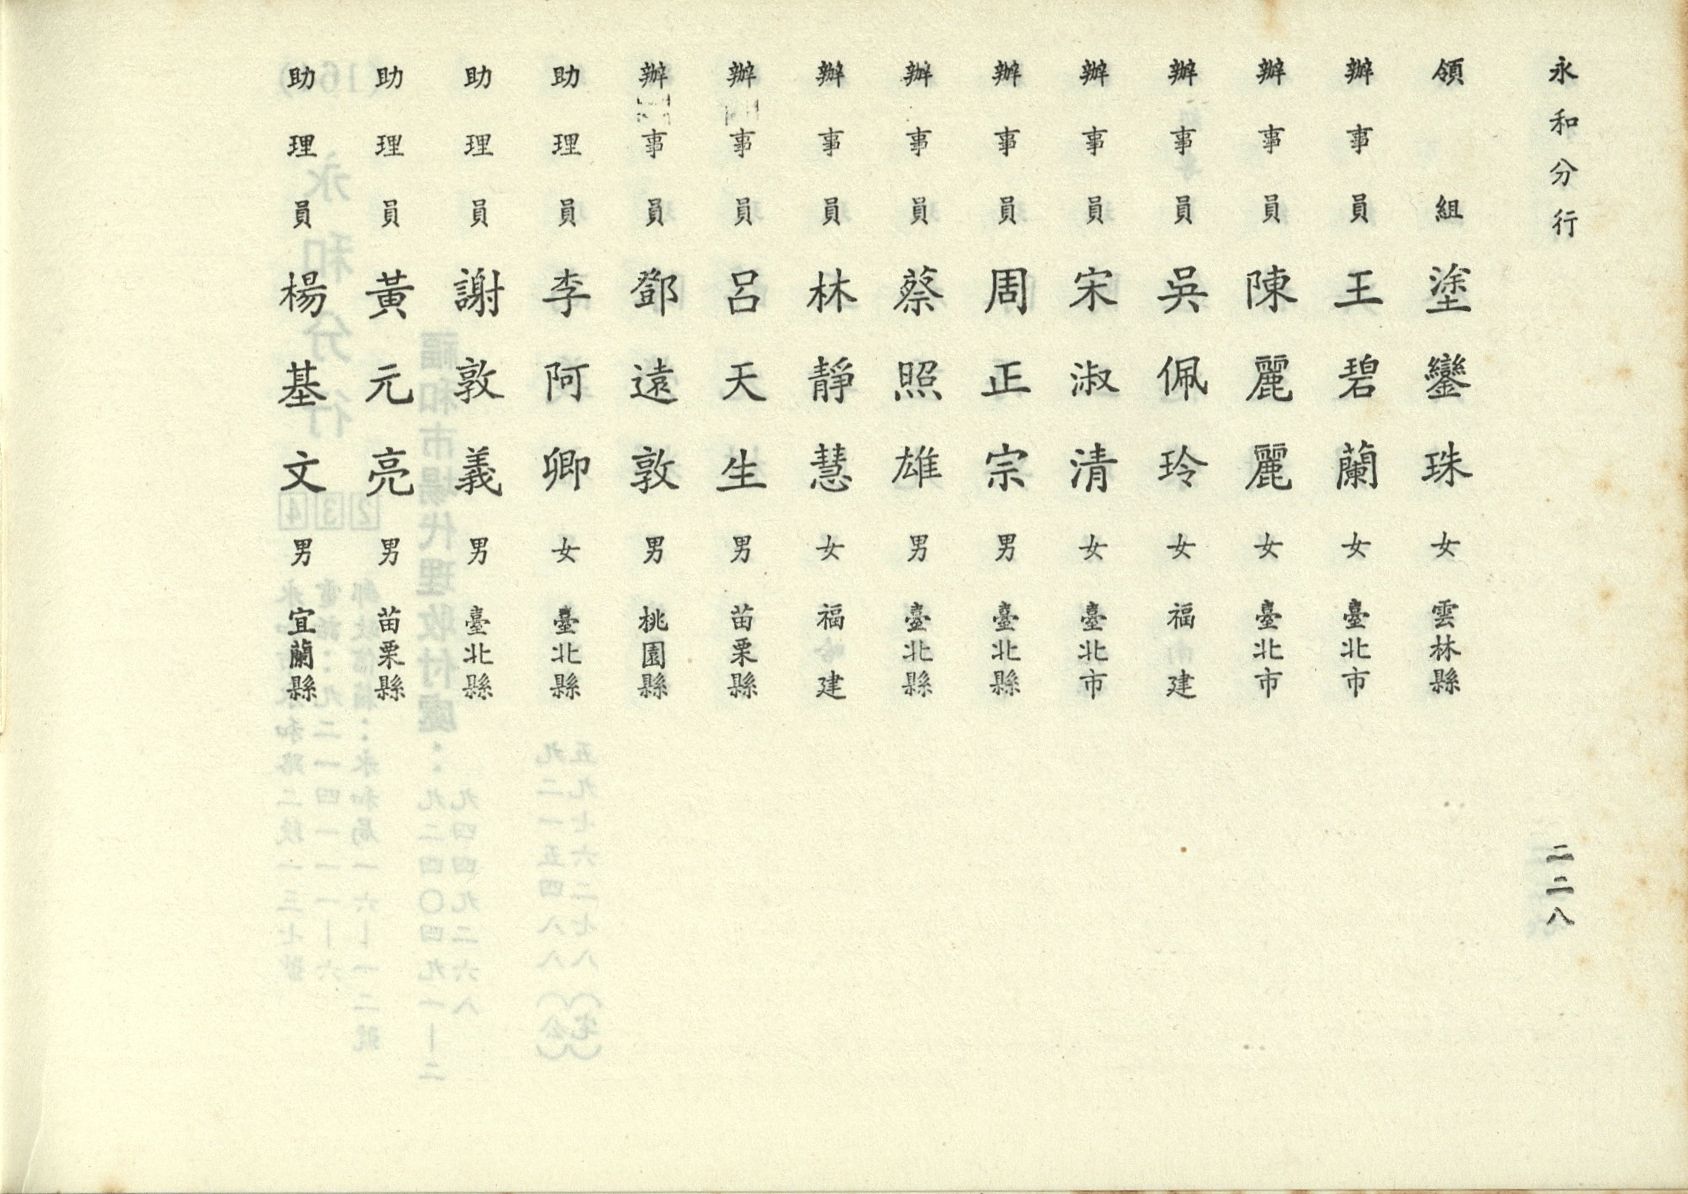 永和分行
二二八
領組 塗鑾珠 女 雲林縣
辦事員 王碧蘭 女 臺北市
辦事員 陳麗麗 女 臺北市
辦事員 吳佩玲 女 福建
辦事員 宋淑清 女 臺北市
辦事員 周正宗 男 臺北縣
辦事員 蔡照雄 男 臺北縣
辦事員 林靜慧 女 福建
辦事員 呂天生 男 苗栗縣
辦事員 鄧遠敦 男 桃園縣
助理員 李阿卿 女 臺北縣
助理員 謝敦義 男 臺北縣
助理員 黃元亮 男 苗栗縣
助理員 楊基文 男 宜蘭縣